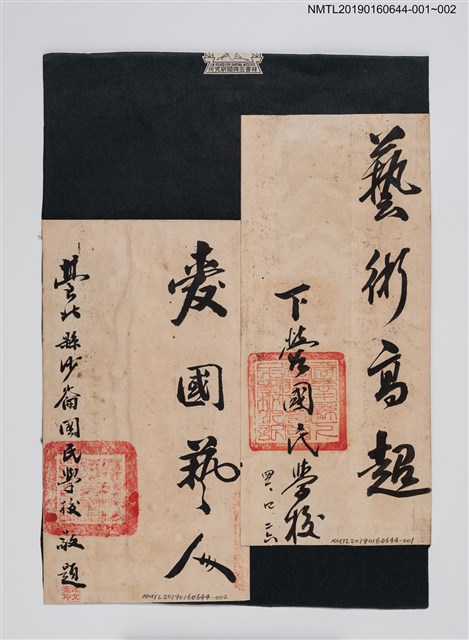 NMTL20190160644-001~002
藝術高超
下營國民學校
四、口、二六
NMTL20190160644-001
愛國藝人
臺北縣沙崙國民學校敬題
NMTL20190160644-002